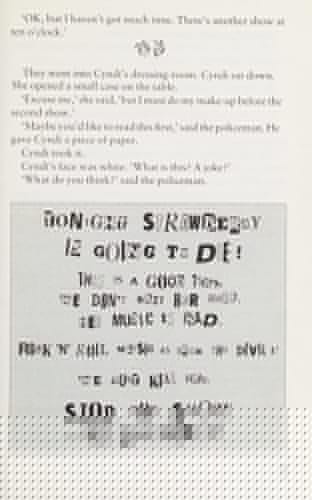 'OK, but I haven't got much time. There's another show at
ten o'clock.'
They went into Cyndi's dressing-room. Cyndi sat down.
She opened a small case on the table.
'Excuse me,' she said, 'but I must do my make-up before the
second show.'
'Maybe you'd like to read this first,' said the policeman. He
gave Cyndi a piece of paper.
Cyndi took it.
Cyndi's face was white. 'What is this? A joke?'
'What do you think?' said the policeman.
STRAWBERRY
IS GOING TO DIE!
THIS IS A GOOD
WE DON'T HER
MUSIC IS BAD.
ROCK 'N' ROLL IS THE DEVIL'S
WE KILL HER.
STOP THE SHOW